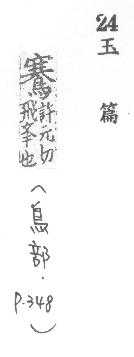 24玉篇
鶱許元切飛舉也
(鳥部．P.348)